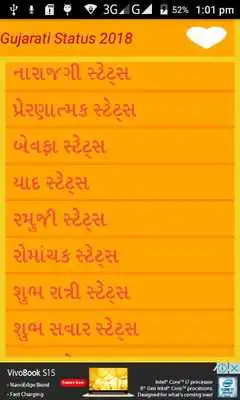 3G G 52% 1:01 pm
Gujarati Status 2018
નારાજગી સ્ટેટ્સ
પ્રેરણાત્મક સ્ટેટ્સ
બેવફા સ્ટેટ્સ
યાદ સ્ટેટ્સ
રમુજી સ્ટેટ્સ
રોમાંચક સ્ટેટ્સ
શુભ રાત્રી સ્ટેટ્સ
શુભ સવાર સ્ટેટ્સ
VivoBook S15
• NanoEdge Bezel
• Fast Charging
Intel® Core™ i7 processor
8th Gen Intel® Core™ processors.
Designed for what's coming next!